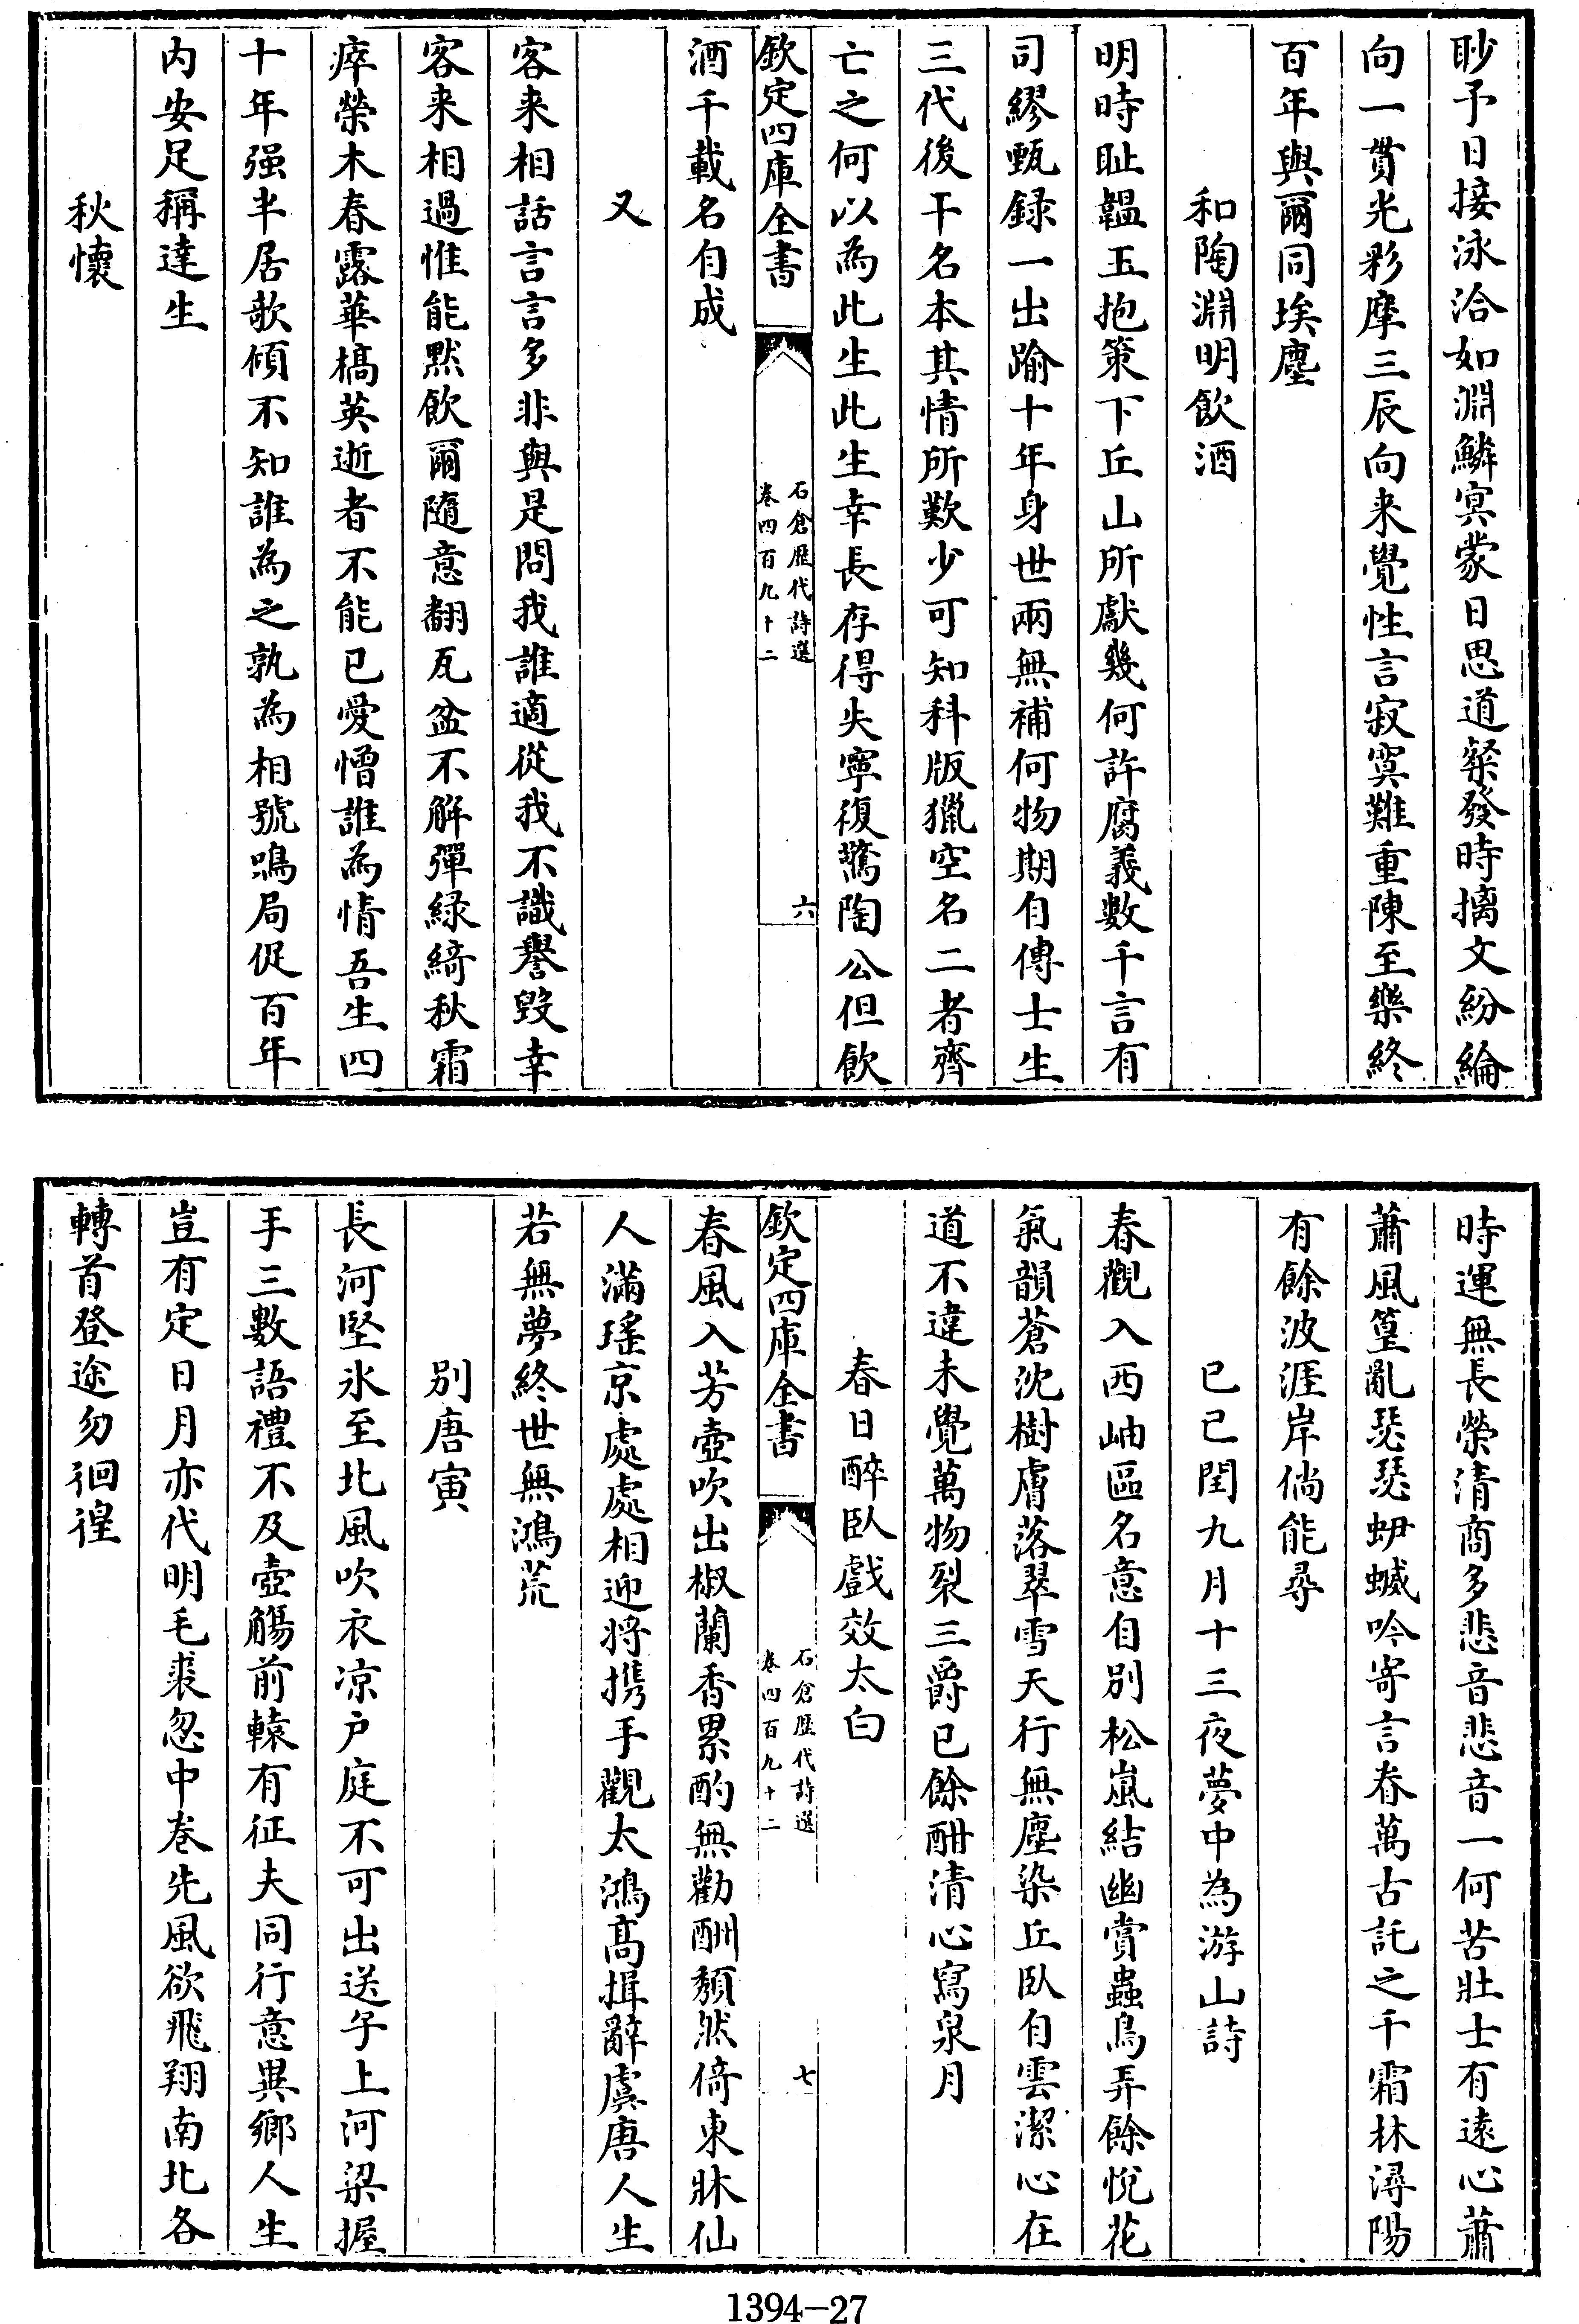 眇予日接泳洽如淵鱗冥蒙日思道粲發時摛文紛綸
向一貫光彩摩三辰向来覺性言寂寞難重陳至樂終
百年與爾同埃塵
和陶淵明飲酒
明時耻韞玉抱策下丘山所獻幾何許腐義數千言有
司繆甄録一出踰十年身世兩無補何物期自傳士生
三代後干名本其情所歎少可知科版獵空名二者齊
亡之何以為此生此生幸長存得失寧復驚陶公但飲
欽定四庫全書
石倉歴代詩選
卷四百九十二
六
酒千載名自成
又
客来相話言言多非與是問我誰適從我不識譽毀幸
客来相過惟能黙飲爾隨意翻瓦盆不解彈緑綺秋霜
瘁榮木春露華槁英逝者不能已愛憎誰為情吾生四
十年强半居欹傾不知誰為之孰為相號鳴局促百年
内安足稱達生
秋懷
時運無長榮清商多悲音悲音一何苦壯士有遠心蕭
蕭風篁亂瑟瑟蛜蝛吟寄言春萬古託之千霜林潯陽
有餘波涯岸倘能尋
已巳閏九月十三夜夢中為游山詩
春觀入西岫區名意自別松嵐結幽賞蟲鳥弄餘悅花
氣韻蒼沈樹膚落翠雪天行無塵染丘臥白雲潔心在
道不違未覺萬物裂三爵已餘酣清心寫泉月
春日醉臥戲效太白
欽定四庫全書
石倉歴代詩選
卷四百九十二
七
春風入芳壺吹出椒蘭香累酌無勸酬頽然倚東牀仙
人滿瑤京處處相迎将携手觀太鴻髙揖辭虞唐人生
若無夢終世無鴻荒
別唐寅
長河堅氷至北風吹衣凉户庭不可出送子上河梁握
手三數語禮不及壺觴前轅有征夫同行意異鄉人生
豈有定日月亦代明毛裘忽中卷先風欲飛翔南北各
轉首登途勿徊徨
1394-27